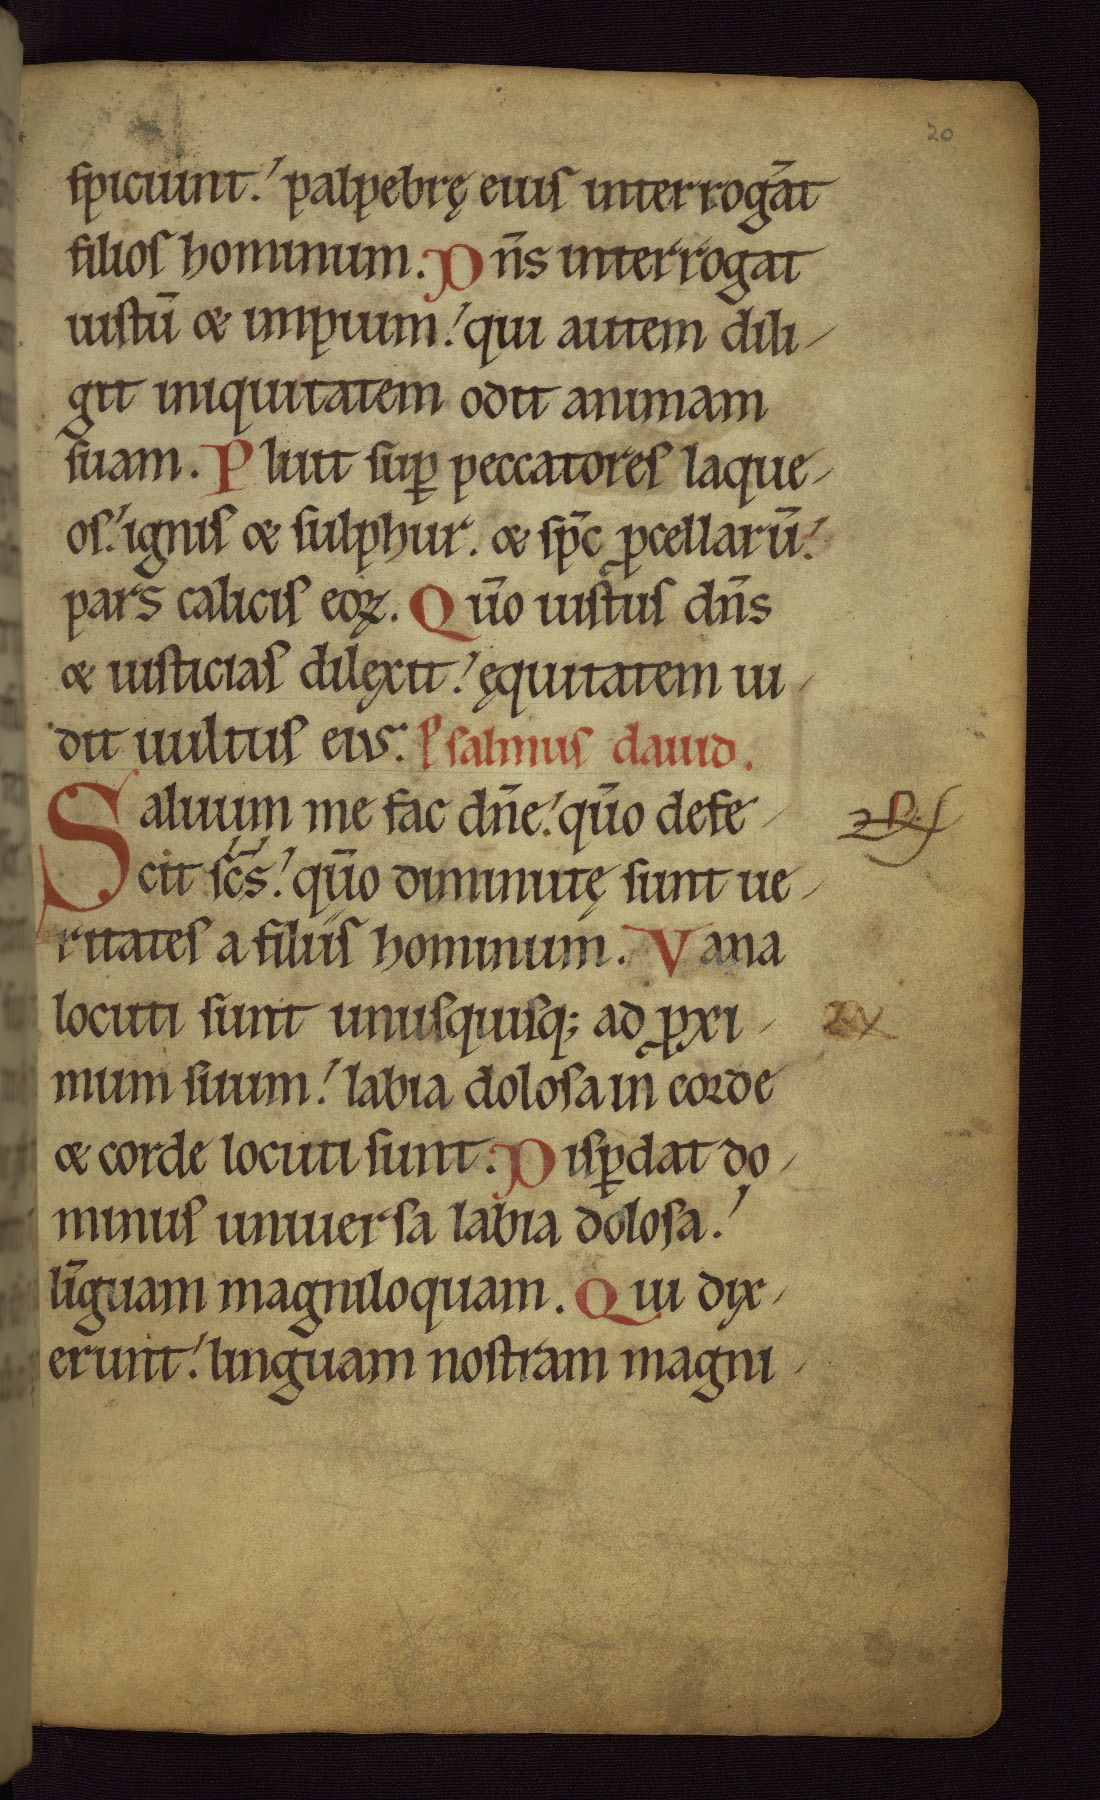 20
spiciunt. palpebrę eius interrogāt
filios hominum. Dn̄s interrogat
iustū & impium. qui autem dili-
git iniquitatem odit animam
suam. Pluit sup̱ peccatores laque-
os. ignis & sulphur. & sp̄c ꝓcellarū.
pars calicis eoꝝ. Qūo iustus dn̄s
& iusticias dilexit. ęquitatem ui-
dit uultus eius. Psalmus dauid.
Saluum me fac dn̄e. qūo defe-
cit sc̄s. qūo diminutę sunt ue-
ritates a filiis hominum. Vana
locuti sunt unusquisq; ad ꝓxi-
mum suum. labia dolosa in corde
& corde locuti sunt. Disꝑdat do-
minus uniuersa labia dolosa.
līguam magniloquam. Qui dix-
erunt. linguam nostram magni-